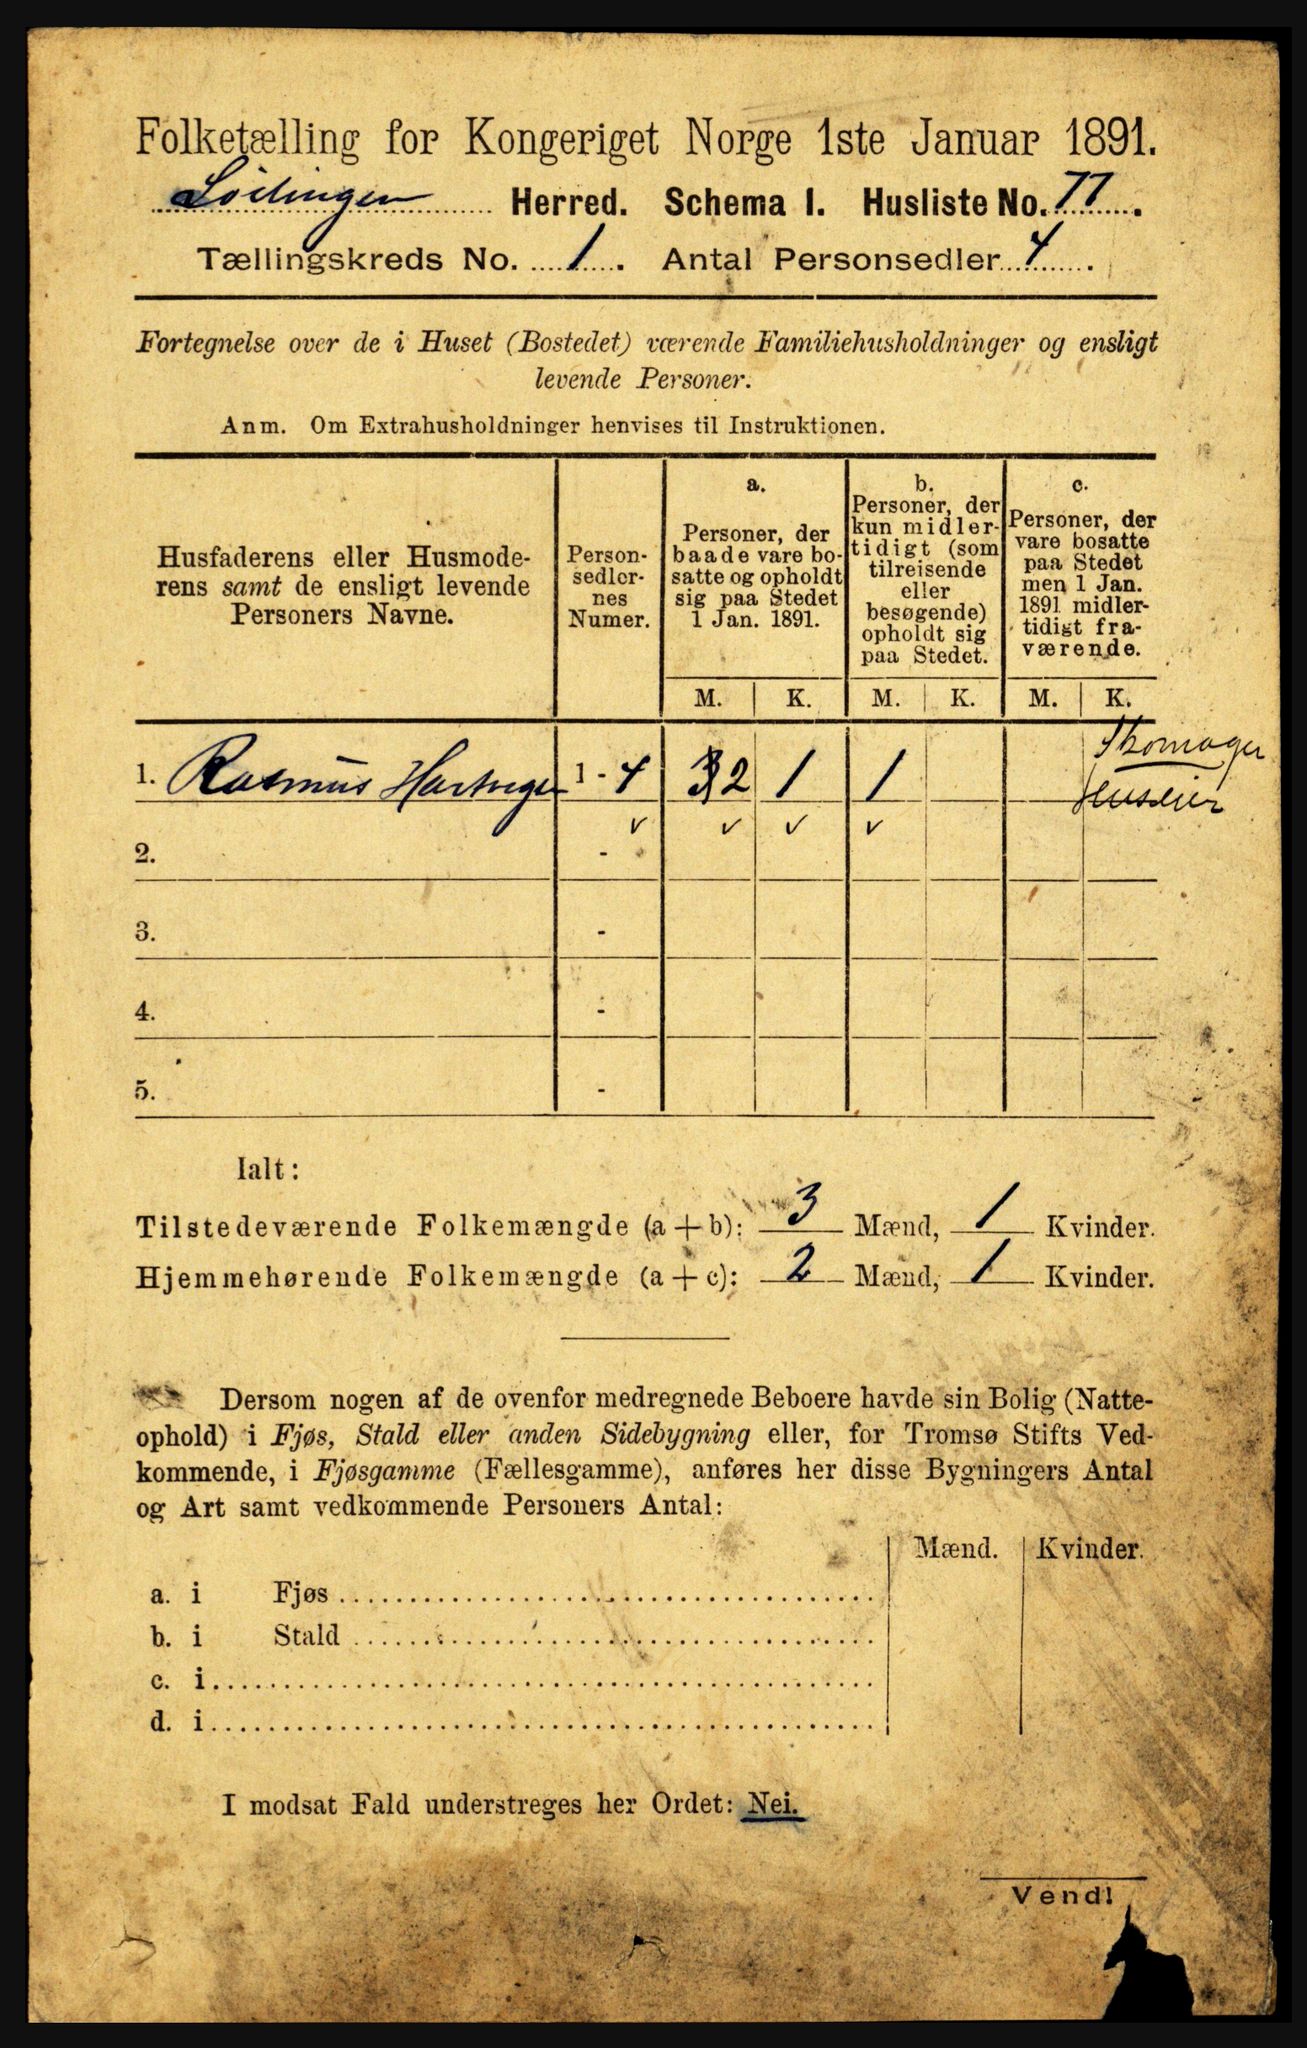 Folketælling for Kongeriget Norge 1ste Januar 1891.
Lödingen Herred. Schema I. Husliste No. 77.
Tællingskreds No. 1. Antal Personsedler 4.
Fortegnelse over de i Huset (Bostedet) værende Familiehusholdninger og ensligt
levende Personer.
Anm. Om Extrahusholdninger henvises til Instruktionen.
Husfaderens eller Husmode-
rens samt de ensligt levende
Personers Navne.
Person-
sedler-
nes
Numer.
a.
Personer, der
baade vare bo-
satte og opholdt
sig paa Stedet
1 Jan. 1891.
b.
Personer, der
kun midler-
tidigt (som
tilreisende
eller
besøgende)
opholdt sig
paa Stedet.
c.
Personer, der
vare bosatte
paa Stedet
men 1 Jan.
1891 midler-
tidigt fra-
værende.
M. K. M. K. M. K.
1. Rasmus 1 - 4 2 1 1 Skomager
Huseier
2. -
3. -
4. -
5. -
Ialt:
Tilstedeværende Folkemængde (a + b): 3 Mænd, 1 Kvinder.
Hjemmehørende Folkemængde (a + c): 2 Mænd, 1 Kvinder.
Dersom nogen af de ovenfor medregnede Beboere havde sin Bolig (Natte-
ophold) i Fjøs, Stald eller anden Sidebygning eller, for Tromsø Stifts Ved-
kommende, i Fjøsgamme (Fællesgamme), anføres her disse Bygningers Antal
og Art samt vedkommende Personers Antal:
Mænd. Kvinder.
a. i Fjøs
b. i Stald
c. i
d. i
I modsat Fald understreges her Ordet: Nei.
Vend!